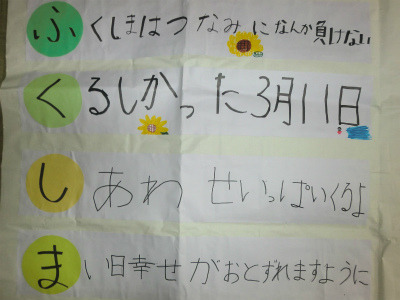 ふくしまはつなみになんか負けない
くるしかった3月11日
しあわせいっぱいくるよ
まい日幸せがおとずれますように